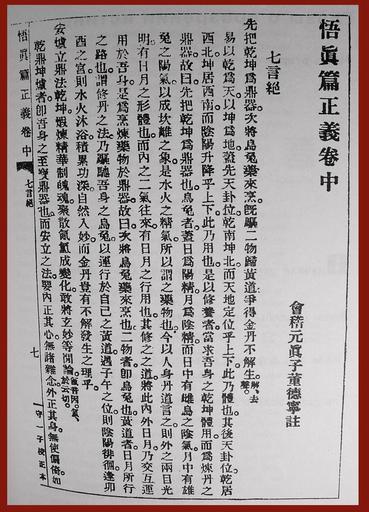 悟眞篇正義卷中
會稽元眞子董德寧註
七言絕
先把乾坤爲鼎器次將烏兔藥來烹旣驅二物歸黃道爭得金丹不解生解去聲
易以乾爲天以坤爲地蓋先天卦位乾南坤北而天地定位乎上下此乃體也其後天卦位乾居
西北坤居西南而陰陽升降乎上下此乃用也是以修養者當求吾身之乾坤體用而爲煉丹之
鼎器故曰先把乾坤爲鼎器也烏兔者蓋日爲陽精月爲陰精而日中有雌烏之陰氣月中有雄
兔之陽氣以成坎離之象是水火之精氣所以謂之藥物也今以人身丹道言之則外之兩目光
明有日月之形體也而內之二氣往來有日月之行用也其修之之道將此內外日月乃交互運
用於吾身是爲烹煉藥物於鼎器故曰次將烏兔藥來烹也二物者卽烏兔也黃道者日月所行
之路也謂修丹之法乃驅聽吾身之烏兔以運行於自己之黃道週子午之位則陰陽徘徊逢卯
酉之宮則水火沐浴積累功深自然入妙而金丹豈有不解發生之理乎
安爐立鼎法乾坤煅煉精華制魄魂聚散氤氳成變化敢將玄妙等閒論氤音因氳於云切
乾鼎坤爐者卽吾身之至要鼎器也而安立之法要內正其心無諸雜念外正其身無使偏倚如
悟眞篇正義卷中
七言絕
七
守一子校正本